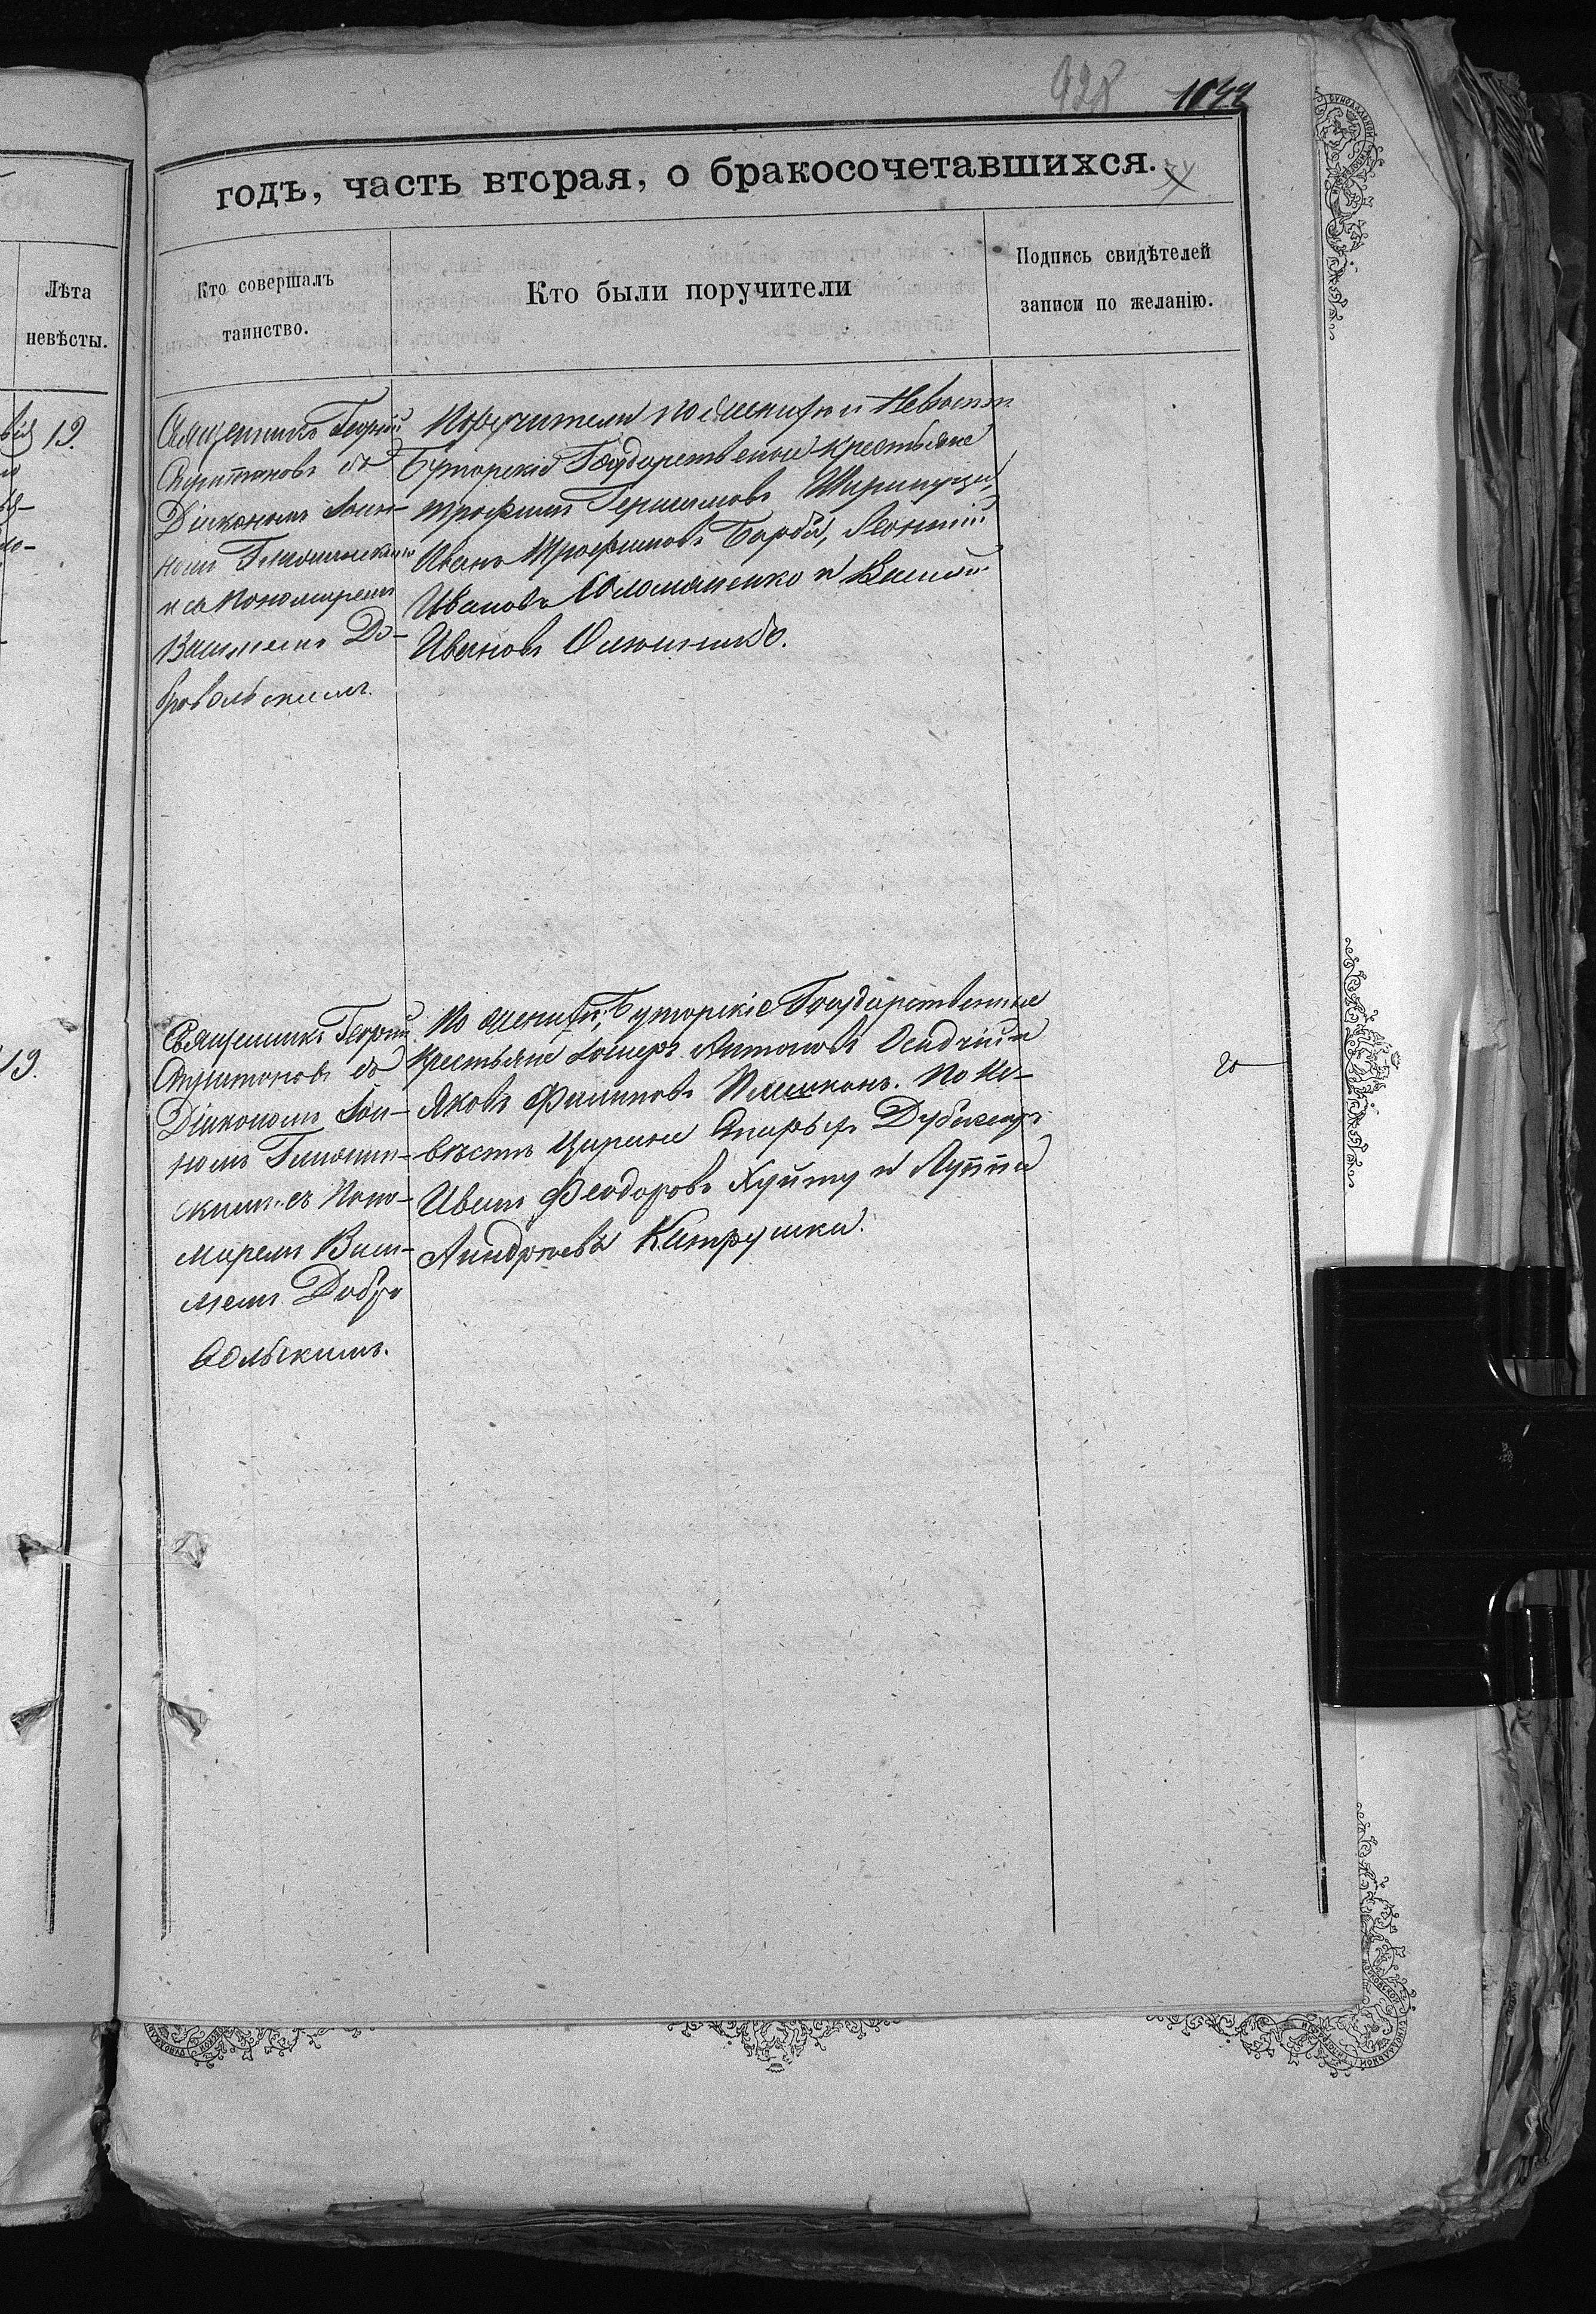 928 1042
годъ, часть вторая, о бракосочетавшихся.
Лѣта
невѣсты.
Кто совершалъ
таинство.
Кто были поручители
Подпись свидѣтелей
записи по желанію.
19.
Священникъ Георгій
съ
Діакономъ Іоан-
номъ
и съ Пономаремъ
Василіемъ До-
бровольскимъ.
Поручители по женихѣ и Невѣстѣ
Буторскіе Государственные крестьяне
Трофимъ Герасимовъ
Иванъ Трофимовъ Барба, Леонтій
Ивановъ Соломаненко и Василій
Ивановъ
19.
Священникъ Георгій
съ
Діакономъ Іоан-
номъ
скимъ съ Поно-
маремъ Васи-
ліемъ Добро
вольскимъ.
По женихѣ; Буторскіе Государственные
Крестьяне Антоновъ Осадчій и
Яковъ Филиповъ Плешканъ. По Не-
вѣстѣ Царане Дубасарь
Иванъ Феодоровъ и
Андреевъ Катрушка.